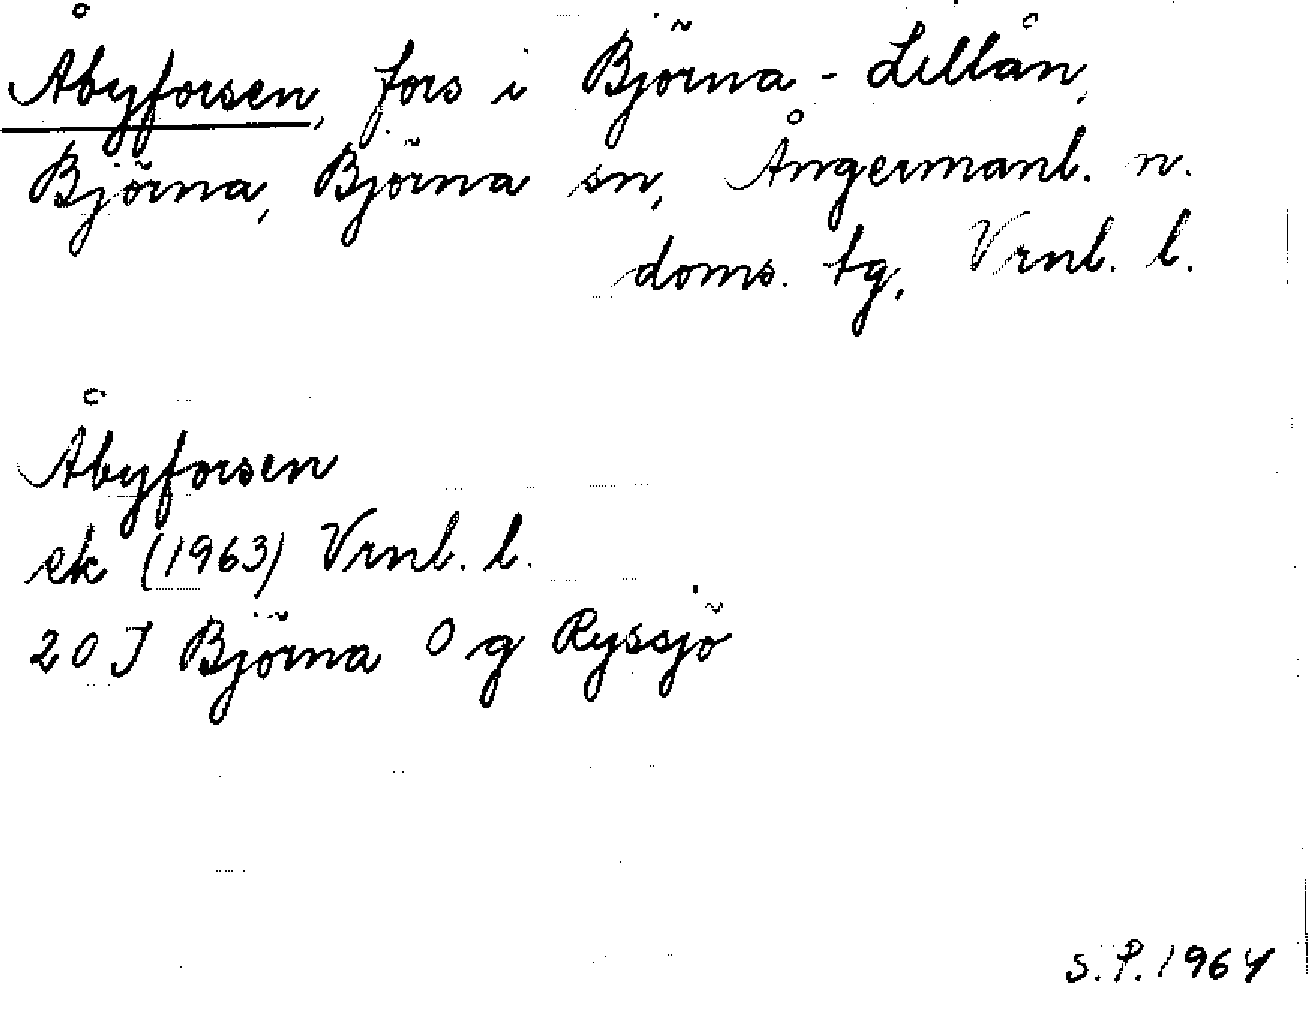 Åbyforsen, fors i Björna - Lillån,
Björna, Björna sn, Ångermanl. n.
doms. tg, Vrnl. l.
Åbyforsen
ek (1963) Vrnl. l.
20 J Björna O g Ryssjö
S.P. 1964